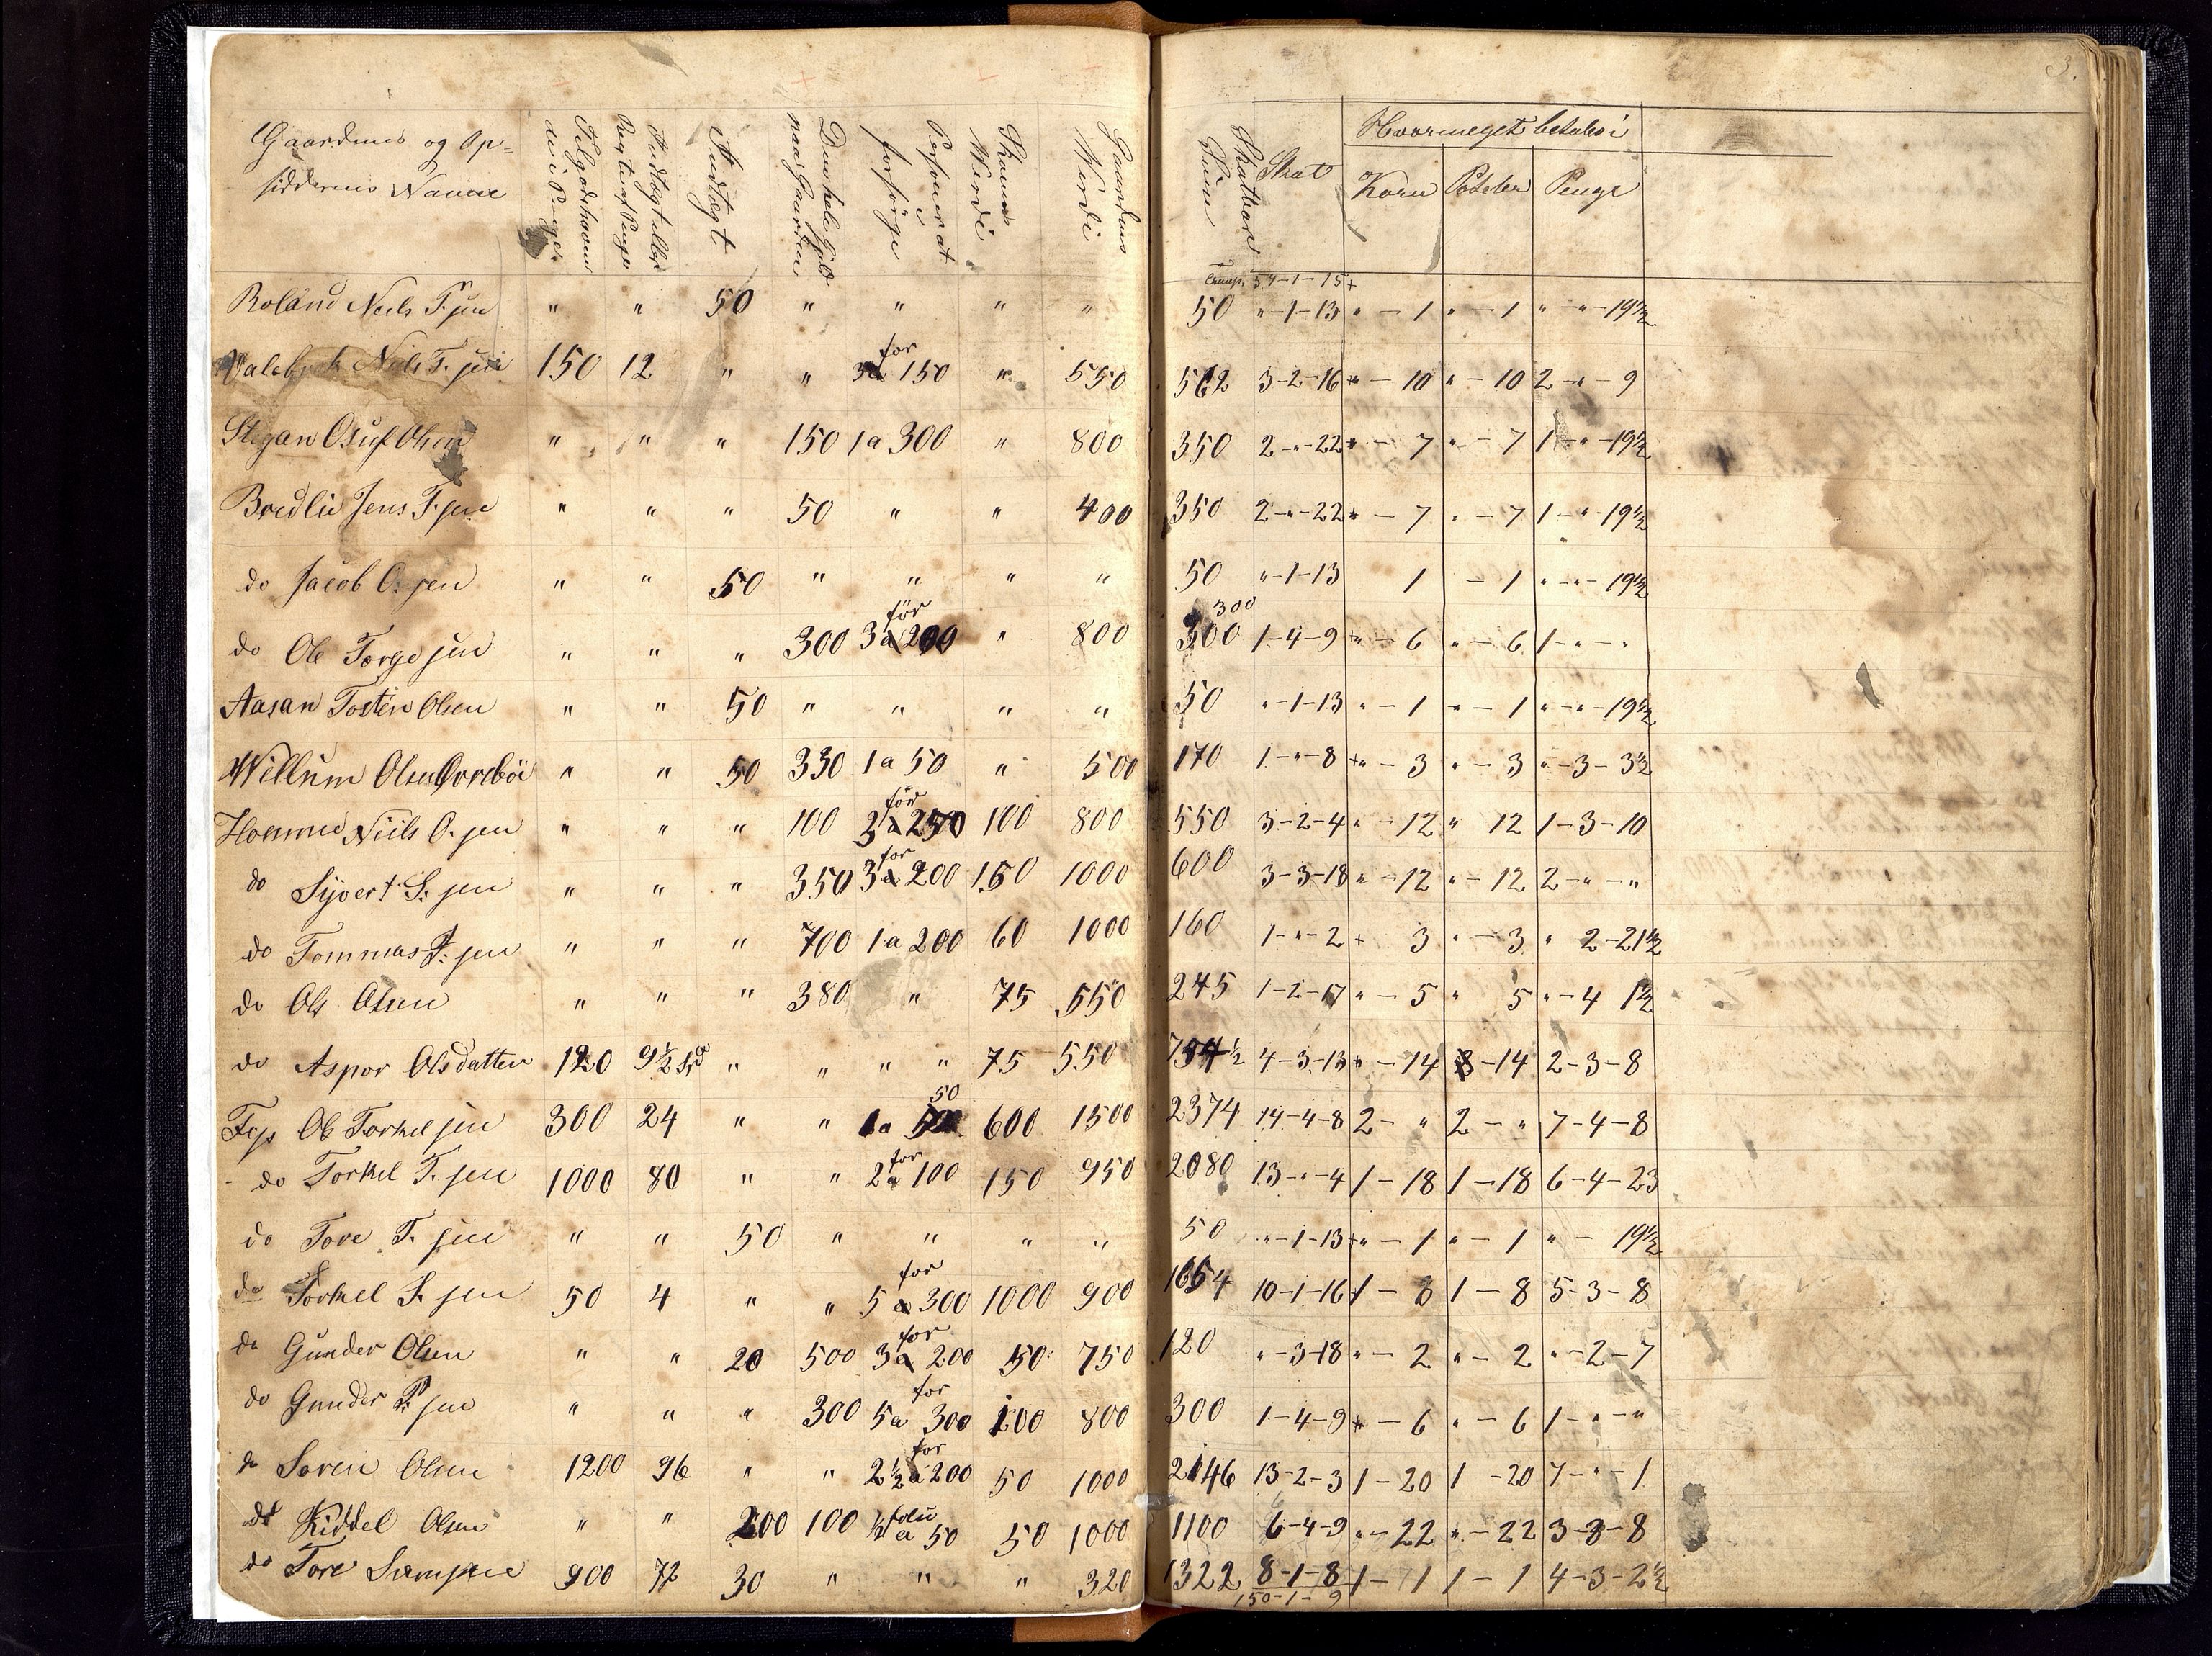 3.
Gaardenes og Op=
siddernes Navne
Tilgodehavende i Penge
Indtægt eller Rente af Penge
Indtægt
Den hele Gjæld paa Gaarden
Personer at forsörge
Skovens Werdi
Gaardens Werdi
Skatbare Sum
Skat
Hvormeget betales i
Korn Poteter Penge
54-1-15+
Roland Neils T.sen " " 50 " " " " 50 "-1-13 "-1 "-1 "-"-19½
Valebrok Niels T.sen 150 12 " " 3 for 150 " 550 562 3-2-16 "-10 "-10 2-"-9
Stegan Osuf Olsen " " " 150 1 a 300 " 800 350 2-"-22 "-7 "-7 1-"-19½
Bredlie Jens T.sen " " " 50 " " 400 350 2-"-22 "-7 "-7 1-"-19½
do Jacob O.sen " " 50 " " " " 50 "-1-13 1 -1 "-"-19½
do Ole Torgesen " " " 300 3 for 200 " 800 300 300 1-4-9 "-6 "-6 1-"-"
Aasan Tosten Olsen " " 50 " " " " 50 "-1-13 "-1 "-1 "-"-19½
Willum Olsen Orreböe " " 50 330 1 a 50 " 500 170 1-"-8 "-3 "-3 "-3-3½
Homme Niils O.sen " " " 100 3 for 250 100 800 550 3-2-4 "-12 " 12 1-3-10
do Syvert S.sen " " " 350 3 for 200 150 1000 600 3-3-18 "-12 "-12 2-"-"
do Tommas T.sen " " " 700 1 a 200 60 1000 160 1-"-2 + 3 "-3 " 2-21½
do Ole Olsen " " " 380 " 75 550 245 1-2-17 "-5 " 5 "-4 1½
do Aspor Olsdatter 120 9½ " " " " 75 550 734½ 4-3-13 "-14 -14 2-3-8
Fos Ole Torkelsen 300 24 " " 1 a 50 600 1500 2374 14-4-8 2-" 2-" 7-4-8
do Torkel T.sen 1000 80 " " 2 for 100 150 950 2080 13-"-4 1-18 1-18 6-4-23
do Tore T.sen " " 50 " " " " 50 "-1-13 "-1 "-1 "- 19½
do Torkel S.sen 50 4 " " 5 for 300 1000 900 1654 10-1-16 1-8 1-8 5-3-8
do Gunder Olsen " " 20 500 3 for 200 50 750 120 "-3-18 "-2 "-2 "-2-7
do Gunder P.sen " " " 300 5 for 300 100 800 300 1-4-9 "-6 "-6 1-"-"
do Soren Olsen 1200 96 " " 2½ for 200 50 1000 2146 13-2-3 1-20 1-20 7-"-1
do Kiddel Olsen " " 200 100 ½ a 50 50 1000 1100 6-4-9 "-22 "-22 3-3-8
do Tore Samsen 900 72 30 " " " 320 1322 8-1-8 1-1 1-1 4-3-2½
150-1-9